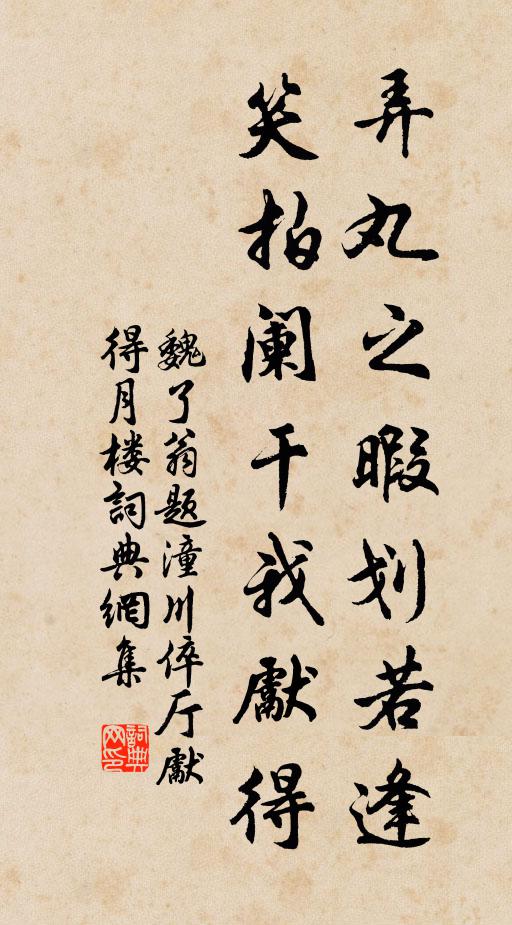 弄丸之暇划若逢
笑拍阑干我獻得
魏了翁题潼川倅厅獻
得月楼詞典網集
詞典网印